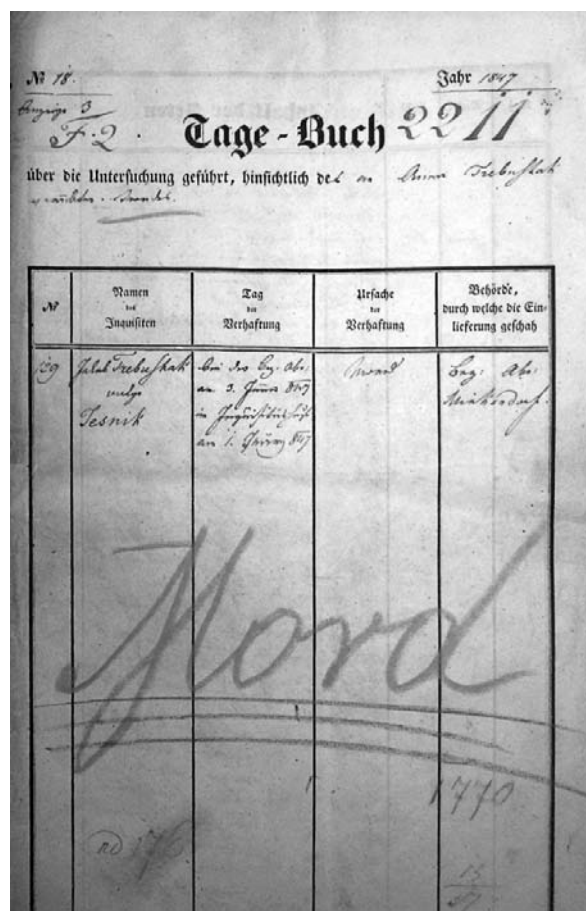 № 18.
Jahr 1847
Anzeige 3
F. 2
Tage-Buch 2211
über die Untersuchung geführt, hinsichtlich des an Anna Trebuschak
Mordes.
№
Namen
des
Inquisiten
Tag
der
Verhaftung
Ursache
der
Verhaftung
Behörde,
durch welche die Ein-
lieferung geschah
139 Jakob Trebuschak
vulgo
Tesnik
bei der Bez. Obr.
am 3. 847
in
am 1. 847
Mord
Bez. Obr.
Minkendorf.
Mord
1770
176
15